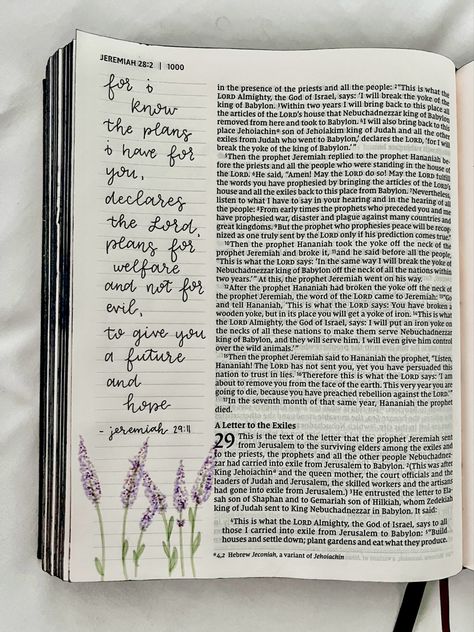 JEREMIAH 28:2 | 1000
for i
know
the plans
i have for
you,
declares
the Lord,
plans for
welfare
and not for
evil,
to give you
a future
and
hope
- jeremiah 29:11
in the presence of the priests and all the people: ²"This is what the
LORD Almighty, the God of Israel, says: 'I will break the yoke of the
king of Babylon. ³Within two years I will bring back to this place all
the articles of the LORD's house that Nebuchadnezzar king of Babylon
removed from here and took to Babylon. ⁴I will also bring back to this
place Jehoiachin*ᵃ son of Jehoiakim king of Judah and all the other
exiles from Judah who went to Babylon,' declares the LORD, 'for I will
break the yoke of the king of Babylon.'"
⁵Then the prophet Jeremiah replied to the prophet Hananiah be-
fore the priests and all the people who were standing in the house of
the LORD. ⁶He said, "Amen! May the LORD do so! May the LORD fulfill
the words you have prophesied by bringing the articles of the LORD's
house and all the exiles back to this place from Babylon. ⁷Nevertheless,
listen to what I have to say in your hearing and in the hearing of all
the people: ⁸From early times the prophets who preceded you and me
have prophesied war, disaster and plague against many countries and
great kingdoms. ⁹But the prophet who prophesies peace will be recog-
nized as one truly sent by the LORD only if his prediction comes true."
¹⁰Then the prophet Hananiah took the yoke off the neck of the
prophet Jeremiah and broke it, ¹¹and he said before all the people,
"This is what the LORD says: 'In the same way I will break the yoke of
Nebuchadnezzar king of Babylon off the neck of all the nations within
two years.'" At this, the prophet Jeremiah went on his way.
¹²After the prophet Hananiah had broken the yoke off the neck of
the prophet Jeremiah, the word of the LORD came to Jeremiah: ¹³"Go
and tell Hananiah, 'This is what the LORD says: You have broken a
wooden yoke, but in its place you will get a yoke of iron. ¹⁴This is what
the LORD Almighty, the God of Israel, says: I will put an iron yoke on
the necks of all these nations to make them serve Nebuchadnezzar
king of Babylon, and they will serve him. I will even give him control
over the wild animals.'"
¹⁵Then the prophet Jeremiah said to Hananiah the prophet, "Listen,
Hananiah! The LORD has not sent you, yet you have persuaded this
nation to trust in lies. ¹⁶Therefore this is what the LORD says: 'I am
about to remove you from the face of the earth. This very year you are
going to die, because you have preached rebellion against the LORD.'"
¹⁷In the seventh month of that same year, Hananiah the prophet
died.
A Letter to the Exiles
29 This is the text of the letter that the prophet Jeremiah sent
from Jerusalem to the surviving elders among the exiles and
to the priests, the prophets and all the other people Nebuchadnez-
zar had carried into exile from Jerusalem to Babylon. ²(This was after
King Jehoiachin*ᵃ and the queen mother, the court officials and the
leaders of Judah and Jerusalem, the skilled workers and the artisans
had gone into exile from Jerusalem.) ³He entrusted the letter to Ela-
sah son of Shaphan and to Gemariah son of Hilkiah, whom Zedekiah
king of Judah sent to King Nebuchadnezzar in Babylon. It said:
⁴This is what the LORD Almighty, the God of Israel, says to all
those I carried into exile from Jerusalem to Babylon: ⁵"Build
houses and settle down; plant gardens and eat what they produce.
ᵃ4,2 Hebrew Jeconiah, a variant of Jehoiachin